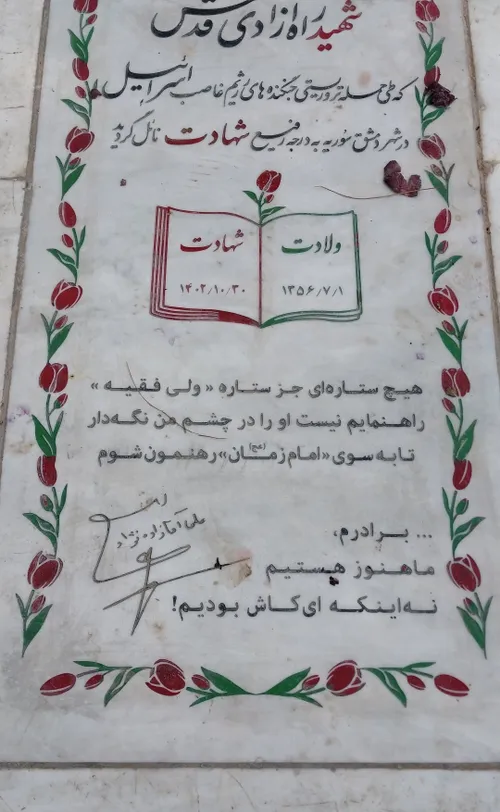 شهید راه آزادی قدس
که طی حمله تروریستی جنگنده های رژیم غاصب اسرائیل
در شهر دمشق سوریه به درجه رفیع شهادت نائل گردید
ولادت
۱۳۵۶/۷/۱
شهادت
۱۴۰۲/۱۰/۳۰
هیچ ستاره‌ای جز ستاره « ولی فقیه »
راهنمایم نیست او را در چشم من نگه‌دار
تا به سوی «امام زمان(عج)» رهنمون شوم
... بـرادرم،
ما هنوز هستیم
نه اینکه ای کاش بودیم!
علی آقازاده نژاد